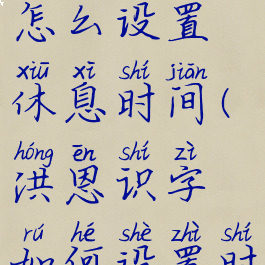 怎么设置
xiū xī shí jiān
休息时间(
hóng ēn shí zì
洪恩识字
rú hé shè zhì shí
如何设置时